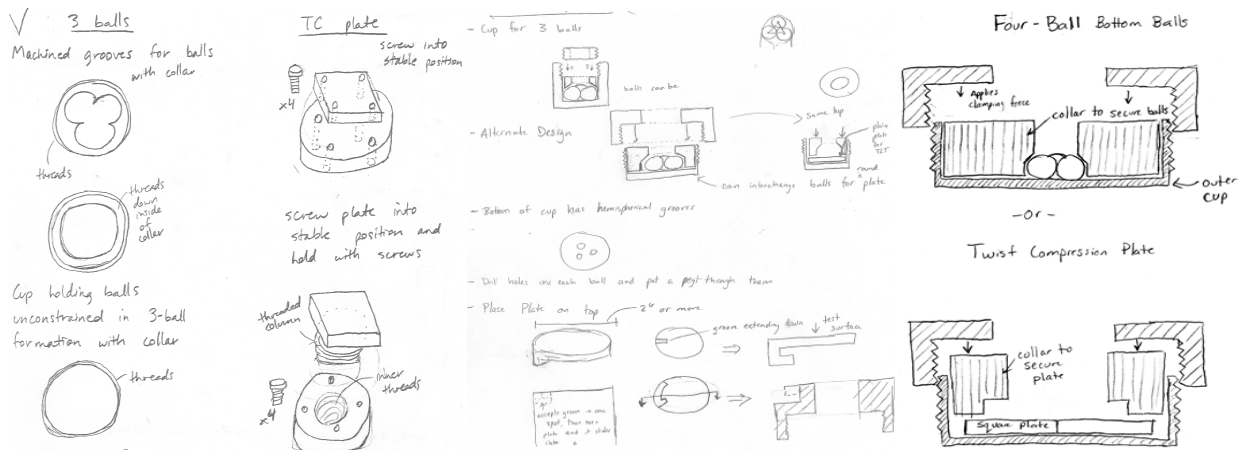 3 balls
Machined grooves for balls
with collar
threads
threads
down
inside
of
collar
Cup holding balls
unconstrained in 3-ball
formation with collar
threads
TC plate
screw into
stable position
x4
screw plate into
stable position and
hold with screws
threaded
column
inner
threads
x4
- Cup for 3 balls
balls can be
- Alternate Design
same top
plain
plate
for
TCT
round
can interchange balls for plate
- Bottom of cup has hemispherical grooves
- Drill holes in each ball and put a through them
- Place Plate on top
2" or more
groove extending down
test
surface
accepts groove in one
spot, then turn
plate and it slides
into a
Four-Ball Bottom Balls
Applies
clamping force
collar to secure balls
outer
cup
-or-
Twist Compression Plate
collar to
secure
plate
square plate